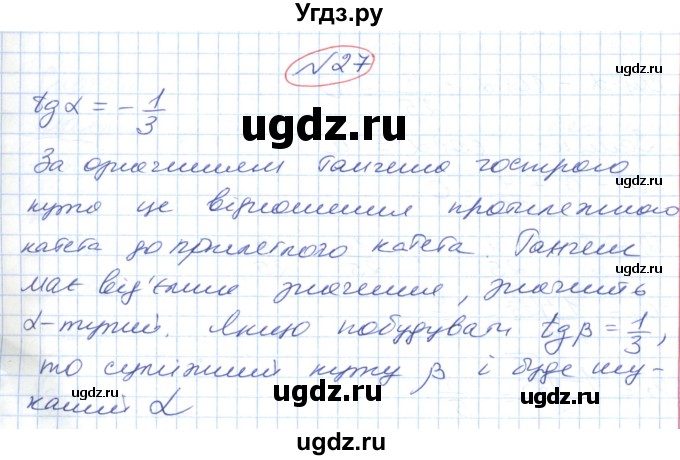 Угдз.ру
№27
ugdz.ru
tg α = - 1/3
ugdz.ru
За означенням Тангенс гострого
ugdz.ru
кута це відношення протилежного
катета до прилеглого катета. Тангенс
ugdz.ru
має від'ємне значення, значить
α-тупий. Якщо побудувати tg β = 1/3,
ugdz.ru
то суміжний куту β і буде шу-
ugdz.ru ugdz.ru
каний α
ugdz.ru